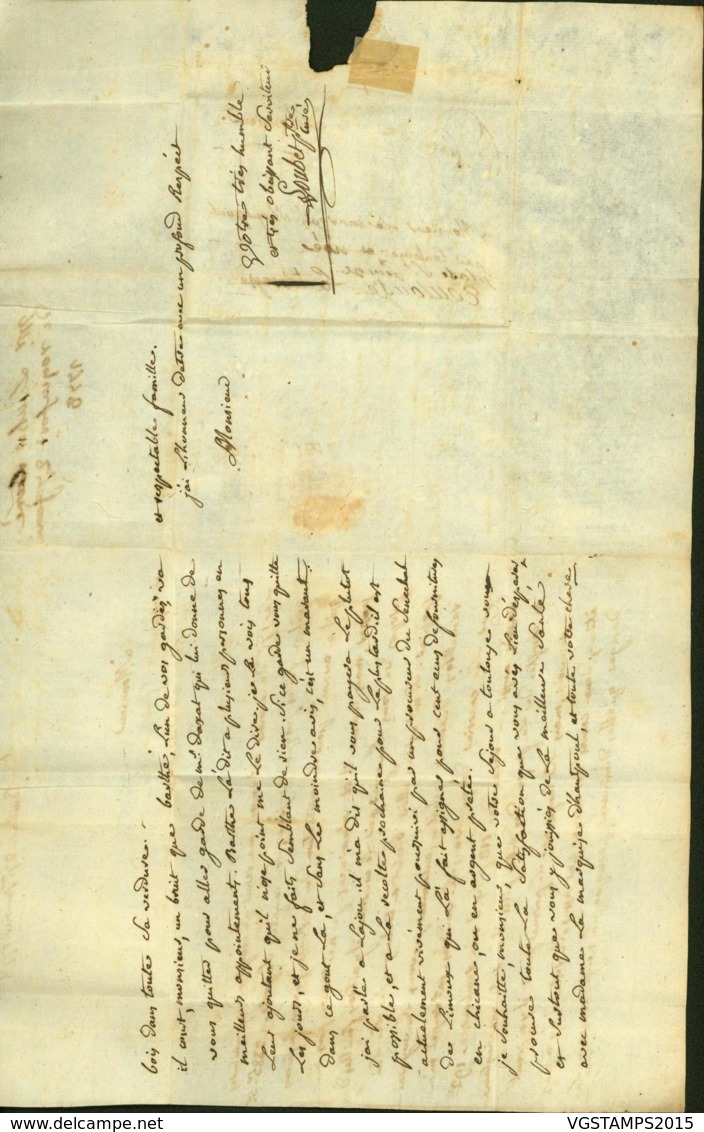 bois dans toute sa verdure.
il court, monsieur, un bruit que barthe, l'un de vos gardes va
vous quitter pour aller garde de mr. daxat qui lui donne de
meilleurs appointements. Barthe l'a dit a plusieurs personnes en
leur ajoutant qu'il n'ose point me le dire. je le vois tous
les jours, et je ne fais semblant de rien. Si ce garde vous quitte
dans ce gout la, et sans le moindre avis, c'est un
j'ai parlé a lajou. il m'a dit qu'il vous payera le plutot
possible, et a la recolte prochaine pour le plus tard. il est
actuellement vivement poursuivi par un procureur du senechal
de Limoux qui l'a fait assigner pour cent ecus de fournitures
en chicane, ou en argent preté.
je souhaite, monsieur, que votre sejour a toulouse vous
procure toute la satisfaction que vous avés lieu d'esperer
et surtout que vous y jouissiés de la meilleure santé,
avec madame la marquise d'hautpoul, et toute votre chere
et respectable famille.
j'ai l'honneur d'etre avec un profond Respect
Monsieur
Votre très humble
et très obeissant serviteur
Loubet ptre
curé
VGSTAMPS2015